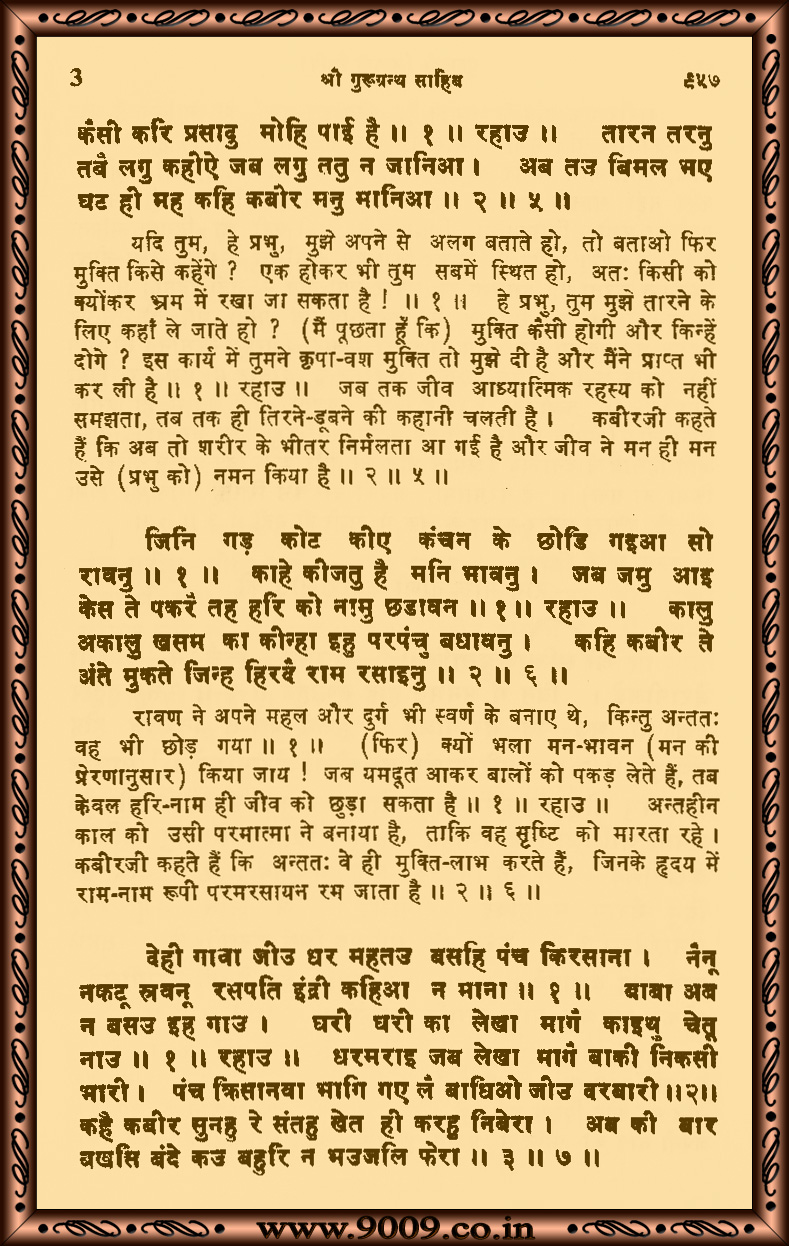 3 श्री गुरूग्रन्थ साहिब ९५७
कैसी करि प्रसादु मोहि पाई है॥ १ ॥ रहाउ॥ तारन तरनु
तबै लगु कहीऐ जब लगु ततु न जानिआ। अब तउ बिमल भए
घट ही मह कहि कबीर मनु मानिआ॥ २॥ ५॥
यदि तुम, हे प्रभु, मुझे अपने से अलग बताते हो, तो बताओ फिर
मुक्ति किसे कहेंगे ? एक होकर भी तुम सबमें स्थित हो, अतः किसी को
क्योंकर भ्रम में रखा जा सकता है ! ॥ १ ॥ हे प्रभु, तुम मुझे तारने के
लिए कहाँ ले जाते हो ? (मैं पूछता हूँ कि) मुक्ति कैसी होगी और किन्हें
दोगे ? इस कार्य में तुमने कृपा-वश मुक्ति तो मुझे दी है और मैंने प्राप्त भी
कर ली है॥ १ ॥ रहाउ॥ जब तक जीव आध्यात्मिक रहस्य को नहीं
समझता, तब तक ही तिरने-डूबने की कहानी चलती है। कबीरजी कहते
हैं कि अब तो शरीर के भीतर निर्मलता आ गई है और जीव ने मन ही मन
उसे (प्रभु को) नमन किया है॥ २॥ ५॥
जिनि गड़ कोट कीए कंचन के छोडि गइआ सो
रावनु॥ १ ॥ काहे कीजतु है मनि भावनु। जब जमु आइ
केस ते पकरै तह हरि को नामु छडावन॥ १॥ रहाउ॥ कालु
अकालु खसम का कीन्हा इहु परपंचु बधावनु। कहि कबीर ते
अंते मुकते जिन्ह हिरदै राम रसाइनु॥ २॥ ६॥
रावण ने अपने महल और दुर्ग भी स्वर्ण के बनाए थे, किन्तु अन्ततः
वह भी छोड़ गया॥ १ ॥ (फिर) क्यों भला मन-भावन (मन की
प्रेरणानुसार) किया जाय ! जब यमदूत आकर बालों को पकड़ लेते हैं, तब
केवल हरि-नाम ही जीव को छुड़ा सकता है॥ १ ॥ रहाउ॥ अन्तहीन
काल को उसी परमात्मा ने बनाया है, ताकि वह सृष्टि को मारता रहे।
कबीरजी कहते हैं कि अन्ततः वे ही मुक्ति-लाभ करते हैं, जिनके हृदय में
राम-नाम रूपी परमरसायन रम जाता है॥ २॥ ६॥
देही गावा जीउ धर महतउ बसहि पंच किरसाना। नैनू
नकटू स्रवनू रसपति इंद्री कहिआ न माना॥ १ ॥ बाबा अब
न बसउ इह गाउ। घरी घरी का लेखा मागै काइथु चेतू
नाउ॥ १॥ रहाउ॥ धरमराइ जब लेखा मागै बाकी निकसी
भारी। पंच क्रिसानवा भागि गए लै बाधिओ जीउ दरबारी॥२॥
कहै कबीर सुनहु रे संतहु खेत ही करहु निबेरा। अब की बार
बखसि बंदे कउ बहुरि न भउजलि फेरा॥ ३॥ ७॥
www.9009.co.in